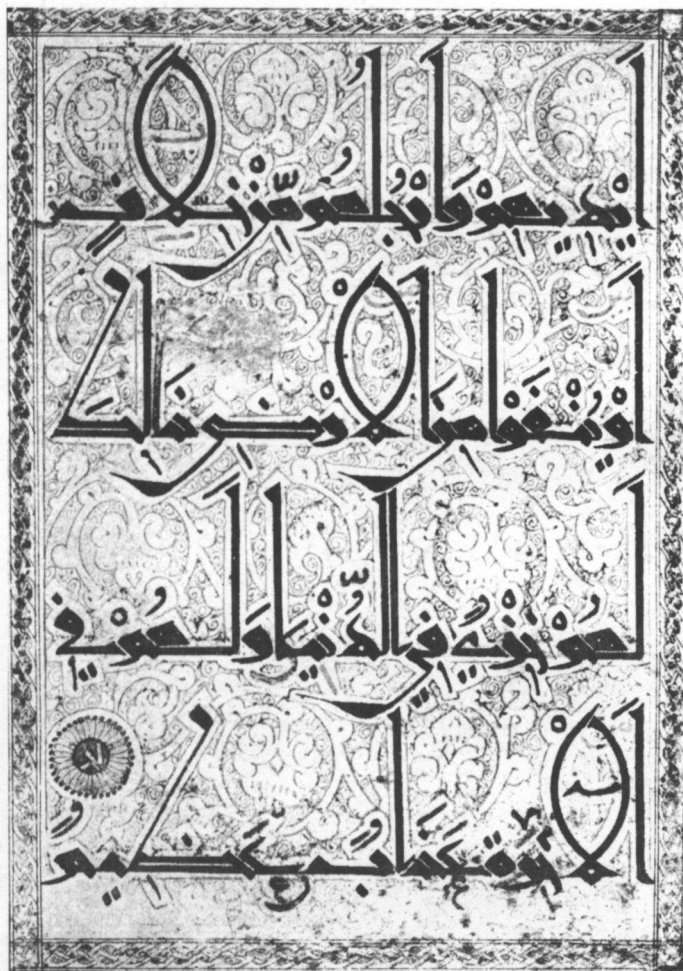 اَيْدِيهِمْ وَاَرْجُلُهُمْ مِّنْ خِلَافٍ
اَوْ يُنْفَوْا مِنَ الْاَرْضِ ذَلِكَ
لَهُمْ خِزْيٌ فِي الدُّنْيَا وَلَهُمْ فِي
الْاَخِرَةِ عَذَابٌ عَظِيمٌ